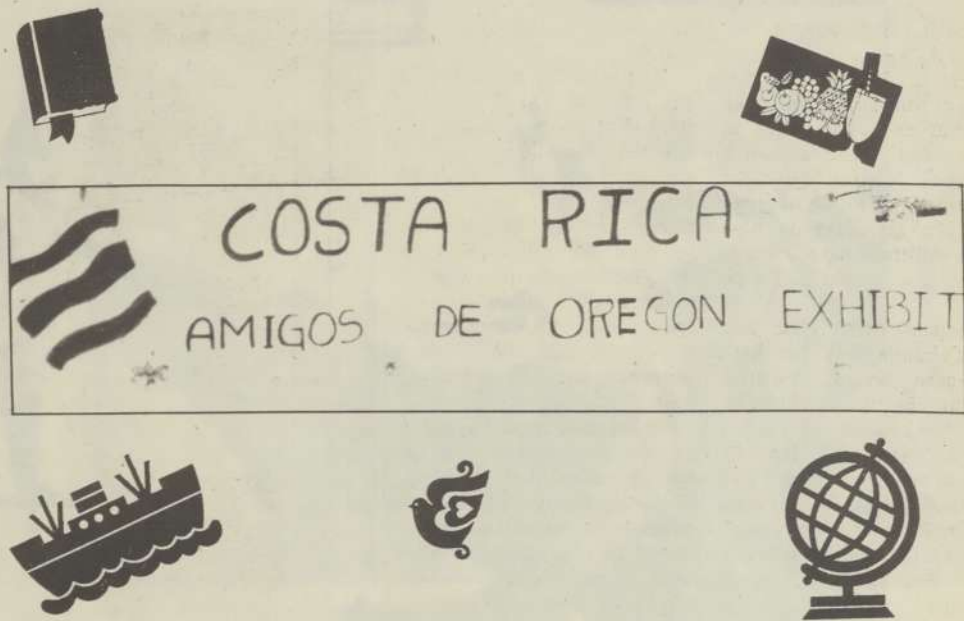 COSTA RICA
AMIGOS DE OREGON EXHIBIT